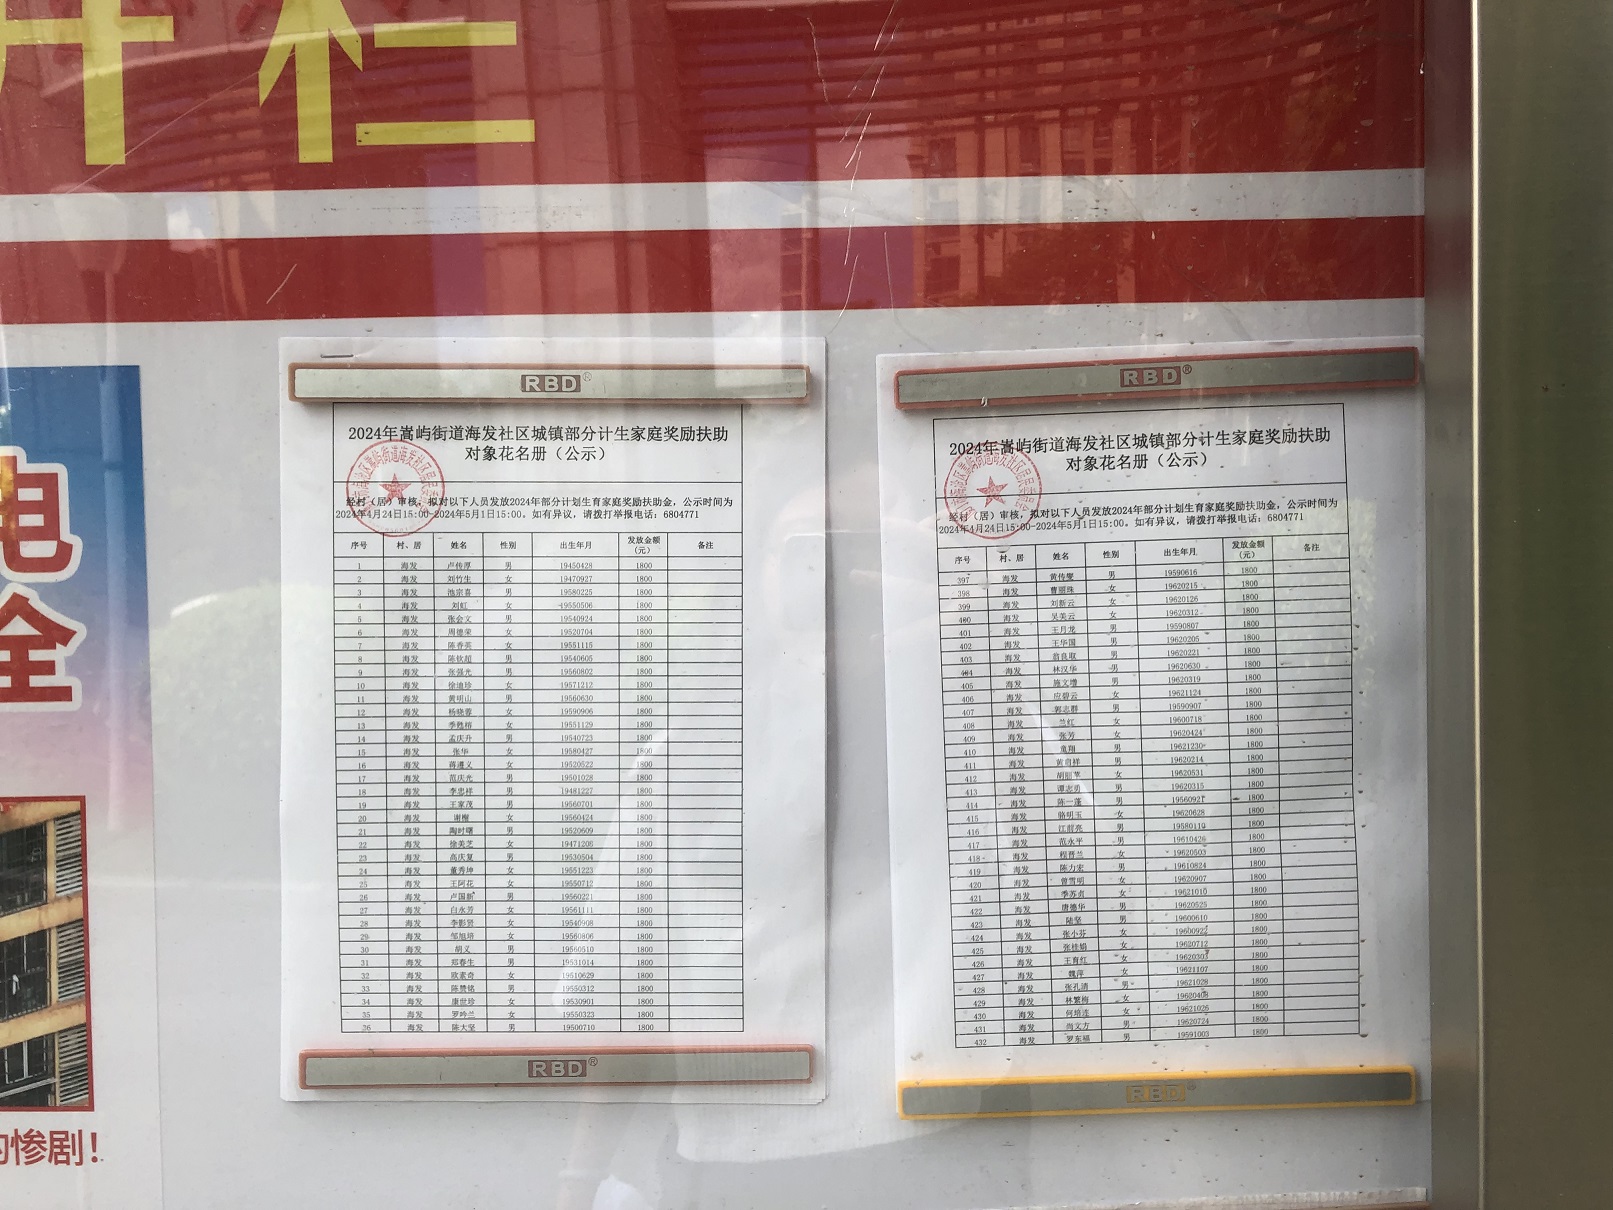 开栏
电
全
的惨剧!
RBD®
2024年嵩屿街道海发社区城镇部分计生家庭奖励扶助
对象花名册（公示）
经村（居）审核，拟对以下人员发放2024年部分计划生育家庭奖励扶助金，公示时间为
2024年4月24日15:00-2024年5月1日15:00。如有异议，请拨打举报电话：6804771
序号 村、居 姓名 性别 出生年月 发放金额（元） 备注
1 海发 卢传淳 男 19450428 1800
2 海发 刘竹生 女 19470927 1800
3 海发 池宗喜 男 19580225 1800
4 海发 刘虹 女 19550506 1800
5 海发 张会文 男 19540924 1800
6 海发 周德荣 女 19520704 1800
7 海发 陈香英 女 19551115 1800
8 海发 陈钦超 男 19540605 1800
9 海发 张强光 男 19560802 1800
10 海发 徐迪珍 女 19571212 1800
11 海发 黄明山 男 19560630 1800
12 海发 杨晓蓉 女 19590906 1800
13 海发 季甦榕 女 19551129 1800
14 海发 孟庆升 男 19540723 1800
15 海发 张华 女 19580427 1800
16 海发 蒋遵义 女 19520522 1800
17 海发 范庆光 男 19501028 1800
18 海发 李忠样 男 19481227 1800
19 海发 王家茂 男 19560701 1800
20 海发 谢榭 女 19560424 1800
21 海发 陶时曙 男 19520609 1800
22 海发 徐美芝 女 19471206 1800
23 海发 高庆复 男 19530504 1800
24 海发 董秀坤 女 19551223 1800
25 海发 王阿花 女 19550712 1800
26 海发 卢国新 男 19560221 1800
27 海发 白永芳 女 19561111 1800
28 海发 李影贤 女 19540908 1800
29 海发 邹旭培 女 19560806 1800
30 海发 胡义 男 19560510 1800
31 海发 郑春生 男 19531014 1800
32 海发 欧素奇 女 19510629 1800
33 海发 陈赞铭 男 19550312 1800
34 海发 康世珍 女 19530901 1800
35 海发 罗吟兰 女 19550323 1800
36 海发 陈大坚 男 19500710 1800
RBD®
RBD®
2024年嵩屿街道海发社区城镇部分计生家庭奖励扶助
对象花名册（公示）
经村（居）审核，拟对以下人员发放2024年部分计划生育家庭奖励扶助金，公示时间为
2024年4月24日15:00-2024年5月1日15:00。如有异议，请拨打举报电话：6804771
序号 村、居 姓名 性别 出生年月 发放金额（元） 备注
397 海发 黄传燮 男 19590616 1800
398 海发 曹丽珠 女 19620215 1800
399 海发 刘新云 女 19620126 1800
400 海发 吴美云 女 19620312 1800
401 海发 王月龙 男 19590807 1800
402 海发 王华国 男 19620205 1800
403 海发 翁良取 男 19620221 1800
404 海发 林汉华 男 19620630 1800
405 海发 施文增 男 19620319 1800
406 海发 应碧云 女 19621124 1800
407 海发 郭志群 男 19590907 1800
408 海发 兰红 女 19600718 1800
409 海发 张芳 女 19620424 1800
410 海发 童翔 男 19621230 1800
411 海发 黄启样 男 19620214 1800
412 海发 胡丽苹 女 19620531 1800
413 海发 谭志勇 男 19620315 1800
414 海发 陈一蓬 男 19560921 1800
415 海发 骆明玉 女 19620628 1800
416 海发 江前亮 男 19580119 1800
417 海发 范永平 男 19610426 1800
418 海发 程晋兰 女 19620503 1800
419 海发 陈力宏 男 19610824 1800
420 海发 曾雪明 女 19620907 1800
421 海发 季苏贞 女 19621010 1800
422 海发 唐德华 男 19620525 1800
423 海发 陆坚 男 19600610 1800
424 海发 张小芬 女 19600922 1800
425 海发 张桂娟 女 19620712 1800
426 海发 王育红 女 19620303 1800
427 海发 魏萍 女 19621107 1800
428 海发 张孔清 男 19621028 1800
429 海发 林繁梅 女 19620408 1800
430 海发 何培连 女 19621026 1800
431 海发 尚文方 男 19620724 1800
432 海发 罗东福 男 19591003 1800
RBD®